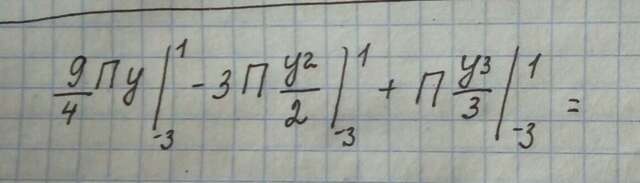 9/4 Пy |₋₃¹ - 3П y²/2 |₋₃¹ + П y³/3 |₋₃¹ =